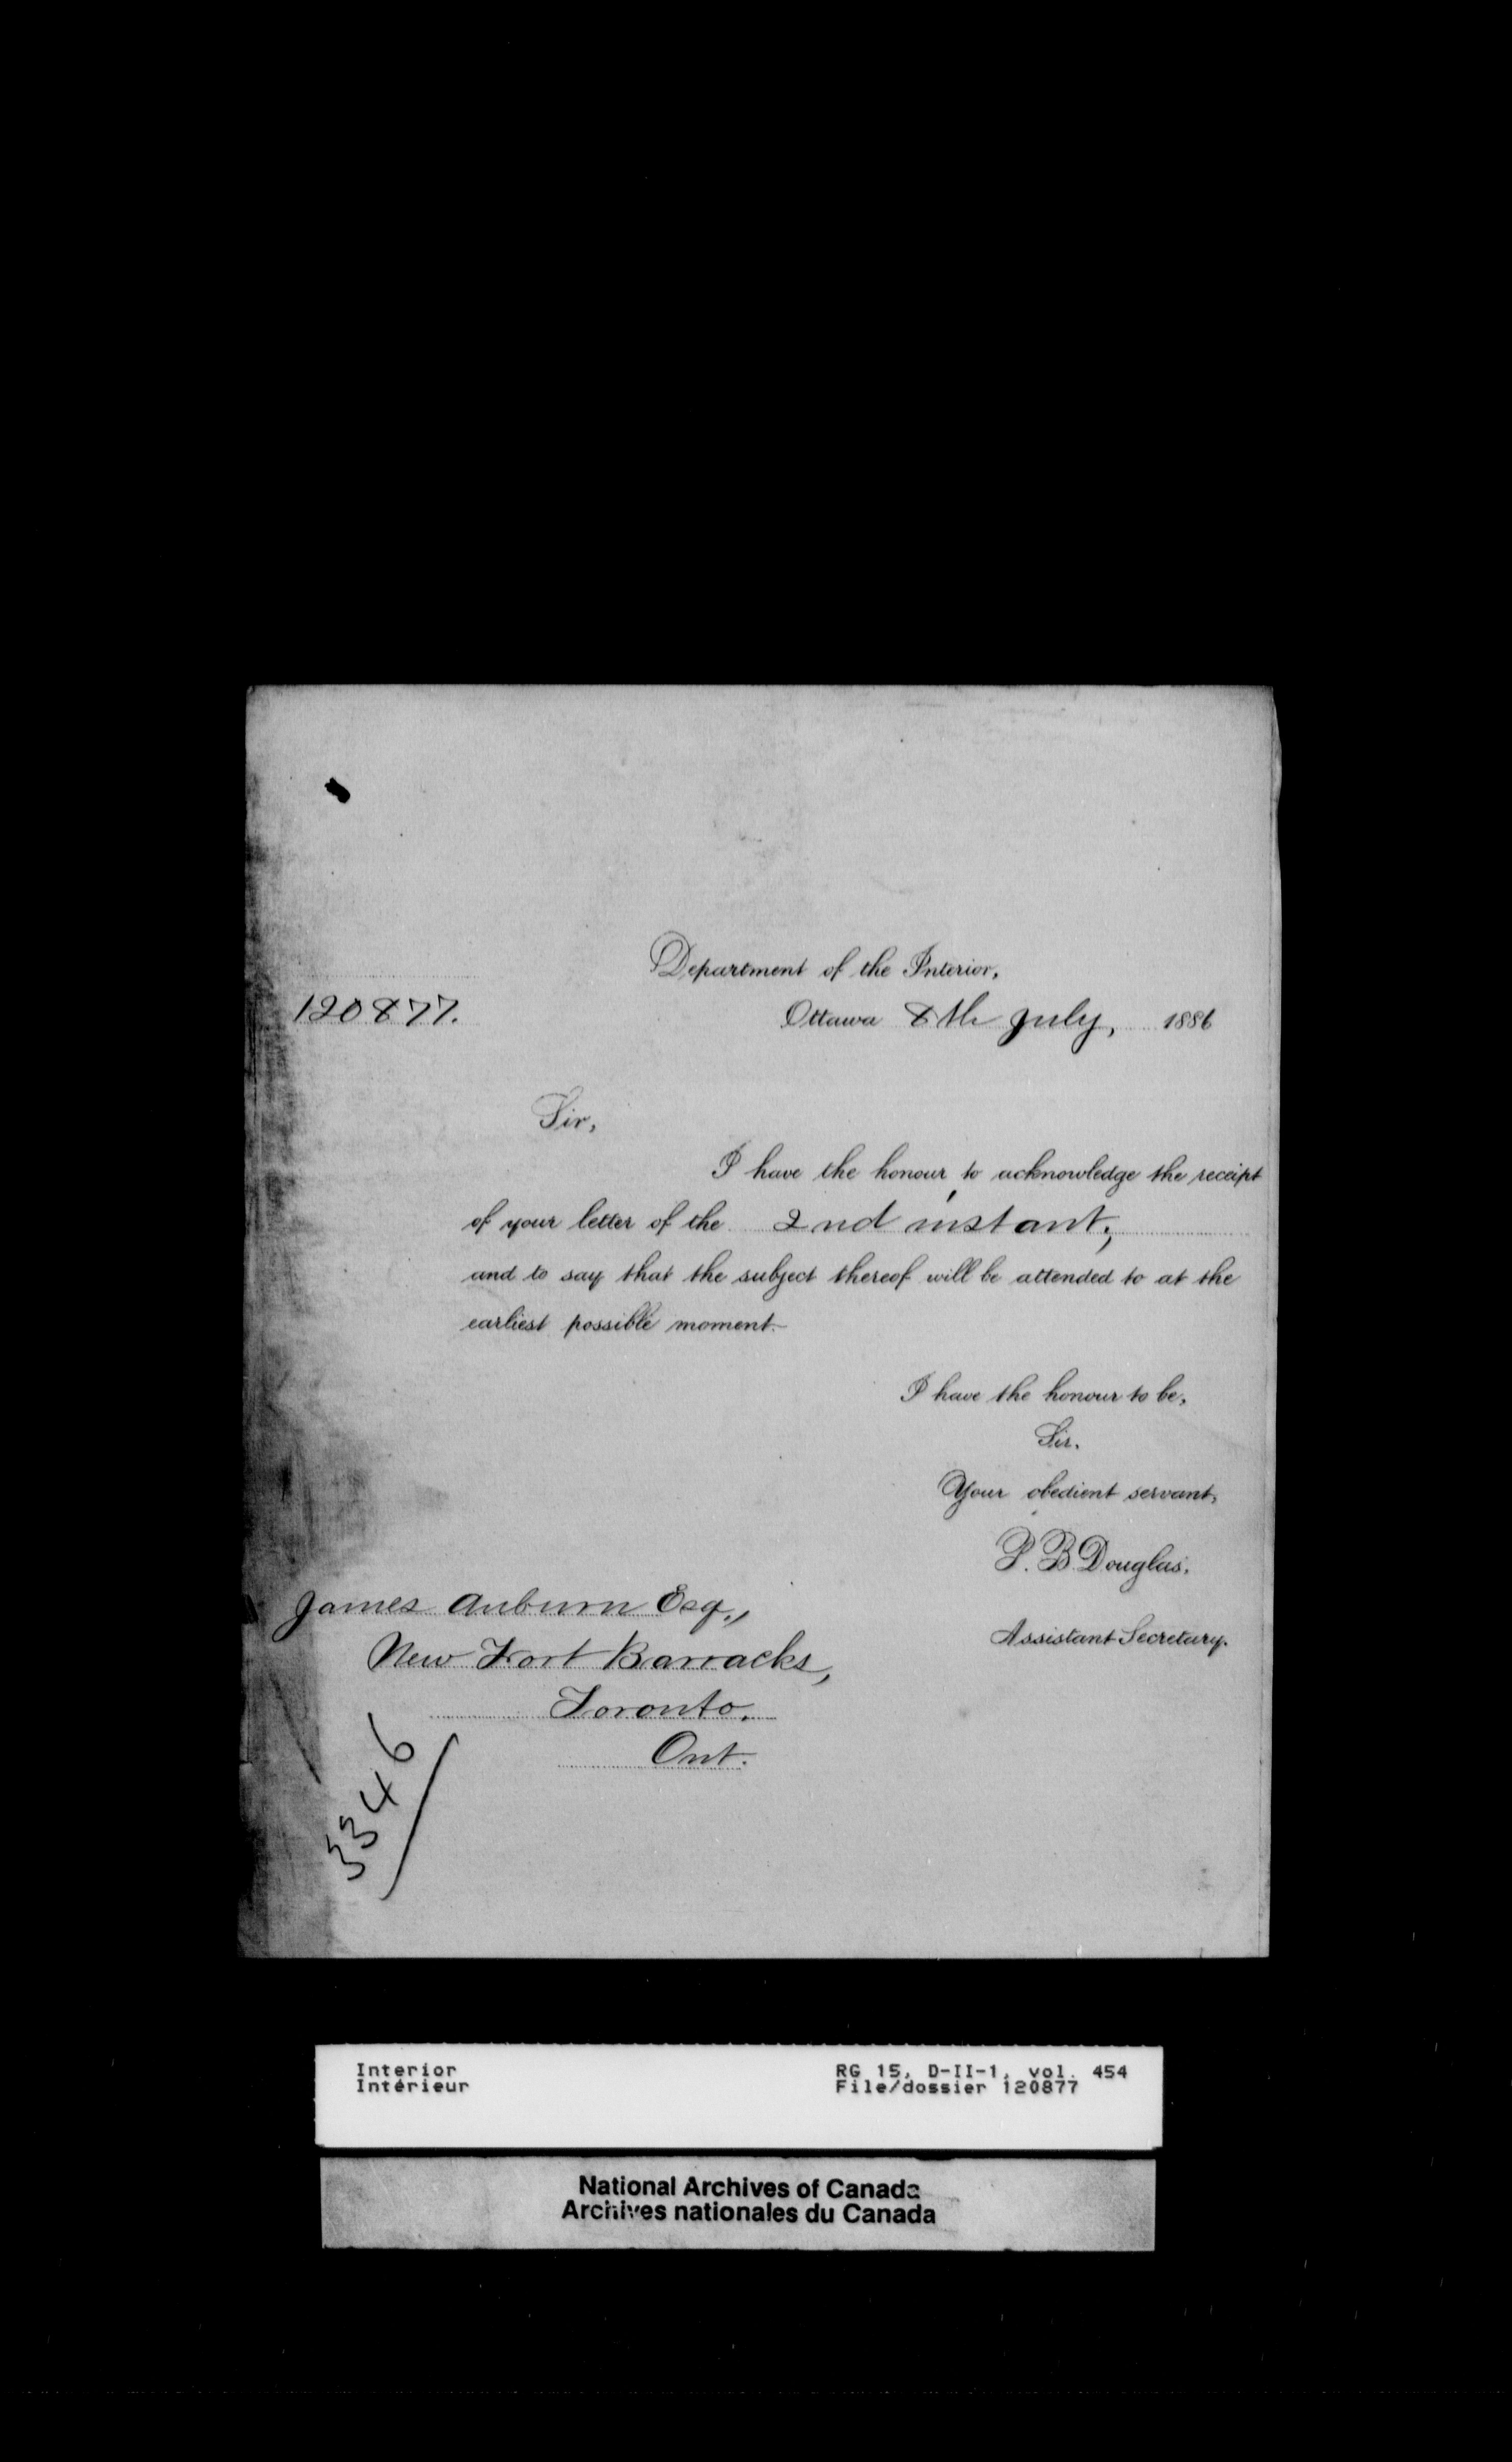 Department of the Interior,
120877.
Ottawa 8th July, 1886
Sir,
I have the honour to acknowledge the receipt
of your letter of the 2nd instant;
and to say that the subject thereof will be attended to at the
earliest possible moment.
I have the honour to be,
Sir.
Your obedient servant,
P. B. Douglas.
Assistant Secretary.
James Auburn Esq.,
New Fort Barracks,
Toronto.
Ont.
3346
Interior
Intérieur
RG 15, D-II-1, vol. 454
File/dossier 120877
National Archives of Canada
Archives nationales du Canada